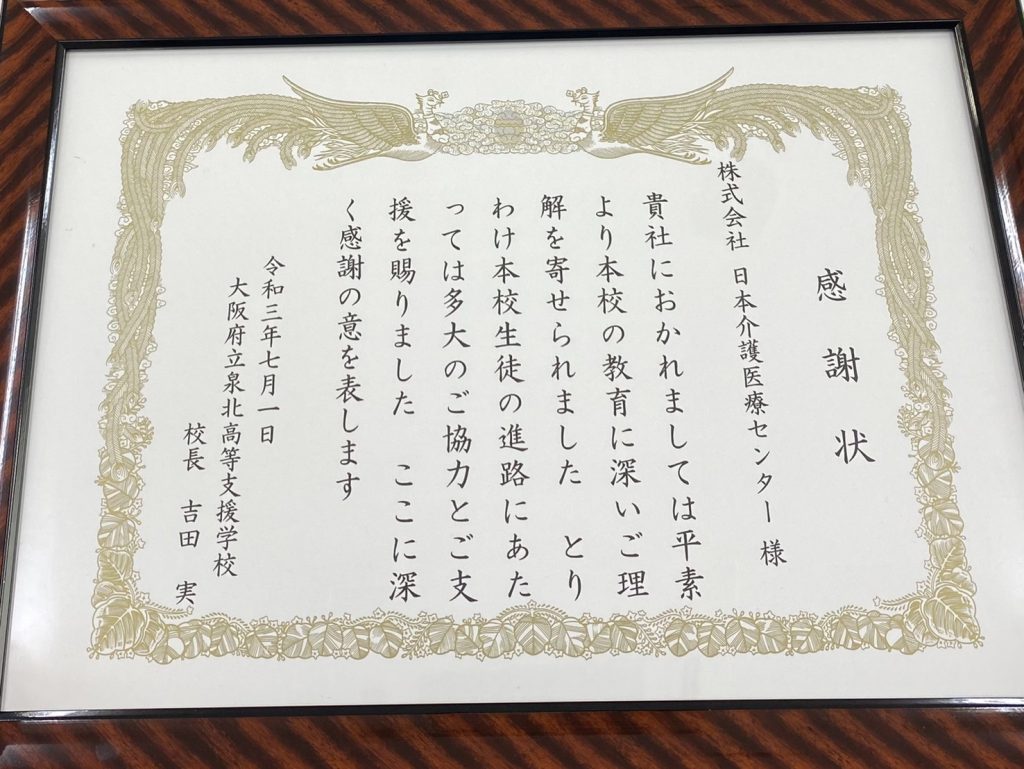 感謝状
株式会社 日本介護医療センター 様
貴社におかれましては平素
より本校の教育に深いご理
解を寄せられました とり
わけ本校生徒の進路にあた
っては多大のご協力とご支
援を賜りました ここに深
く感謝の意を表します
令和三年七月一日
大阪府立泉北高等支援学校
校長 吉田 実